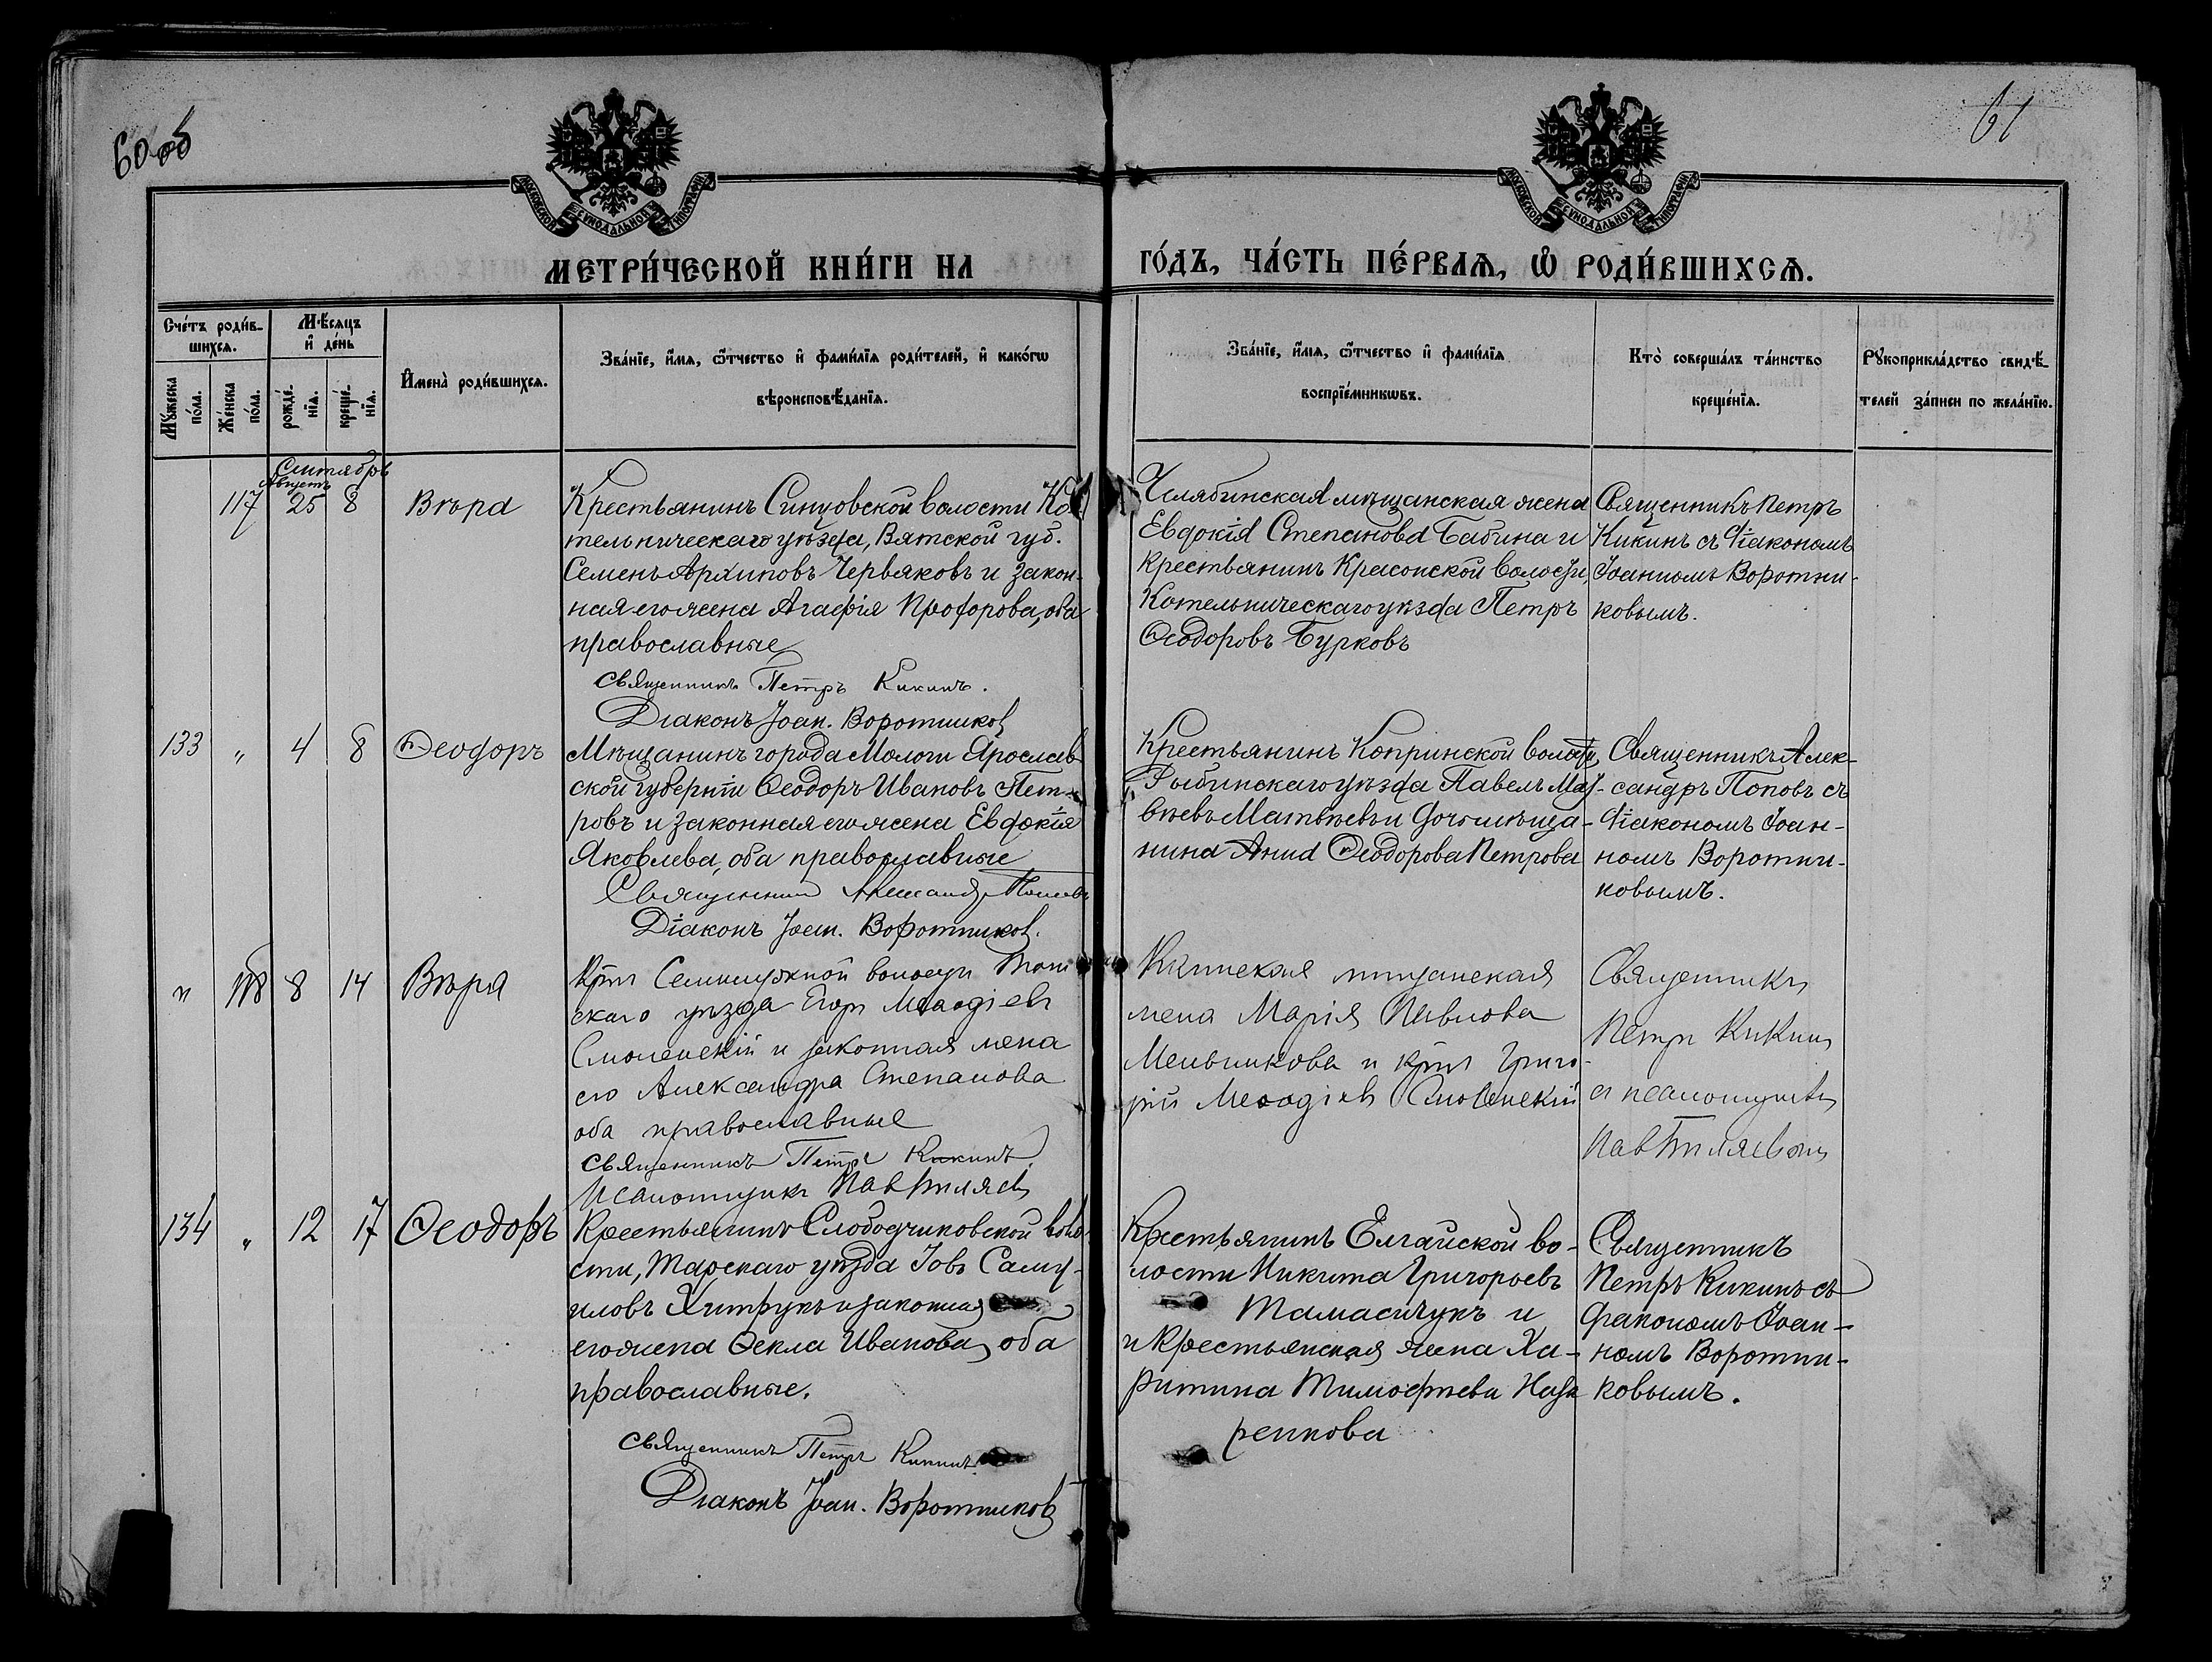 60 об
61
МОСКОВСКОЙ СѴНОДАЛЬНОЙ ТИПОГРАФІИ
МОСКОВСКОЙ СѴНОДАЛЬНОЙ ТИПОГРАФІИ
МЕТРИ́ЧЕСКОЙ КНИ́ГИ НА
ГО́ДЪ, ЧА́СТЬ ПЕ́РВАѦ, Ѡ РОДИ́ВШИХСѦ.
Сче́тъ роди́в-
шихсѧ.
Мꙋжеска по́ла.
Же́нска по́ла.
Мѣ́сяцъ
и҆ де́нь
рожде́-
нїѧ.
креще́-
нїѧ.
И҆мена̀ роди́вшихсѧ.
Зва́нїе, и҆́мѧ, ѻ҆́тчество и҆ фами́лїѧ роди́телей, и҆ како́гѡ
вѣроисповѣ́данїѧ.
Зва́нїе, и҆́мѧ, ѻ҆́тчество и҆ фами́лїѧ
воспрїе́мникѡвъ.
Кто̀ соверша́лъ та́инство
креще́нїѧ.
Рꙋкоприкла́дство свидѣ́-
телей за́писи по жела́нїю.
Сентябрь
Августъ
117 25 8 Вѣра
Крестьянинъ Синцовской волости Ко-
тельническаго уѣзда, Вятской губ.
Семенъ Архиповъ Червяковъ и закон-
ная его жена Агафія Прохорова, оба
православные
Священникъ Петръ Кикинъ.
Діаконъ Іоан. Воротниковъ
Челябинская мѣщанская жена
Евдокія Степанова Бабина и
крестьянинъ Красонской волости,
Котельническаго уѣзда Петръ
Ѳеодоровъ Бурковъ
Священникъ Петръ
Кикинъ съ діакономъ
Іоанномъ Воротни-
ковымъ.
133 " 4 8 Ѳеодоръ
Мѣщанинъ города Мологи Ярослав-
ской губерніи Ѳеодоръ Ивановъ Пет-
ровъ и законная его жена Евдокія
Яковлева, оба православные
Священникъ Александръ Поповъ
Діаконъ Іоан. Воротниковъ.
Крестьянинъ Копринской волости,
Рыбинскаго уѣзда Павелъ Мат-
вѣевъ Матвѣевъ и дочь мѣща-
нина Анна Ѳеодорова Петрова
Священникъ Алек-
сандръ Поповъ съ
діакономъ Іоан-
номъ Воротни-
ковымъ.
" 118 8 14 Вѣра
Семилужной волости Том
скаго уѣзда Егоръ Меѳодіевъ
Смоленскій и законная жена
его Александра Степанова
оба православные
Священникъ Петръ Кикинъ.
Псаломщикъ
мѣщанская
жена Марія Павлова
Мельникова и Григо-
рій Меѳодіевъ Смоленскій
Священникъ
Петръ Кикинъ
съ псаломщикомъ
134 " 12 17 Ѳеодоръ
Крестьянинъ Слободчиковской воло-
сти, Тарскаго уѣзда Іовъ Саму-
иловъ Хитрукъ и законная
его жена Ѳекла Иванова, оба
православные.
Священникъ Петръ Кикинъ.
Діаконъ Іоан. Воротниковъ
Крестьянинъ Елгайской во-
лости Никита Григорьевъ
Тамасичукъ и
и крестьянская жена Ха-
ритина Тимофѣева
Священникъ
Петръ Кикинъ съ
діакономъ Іоан-
номъ Воротни-
ковымъ.